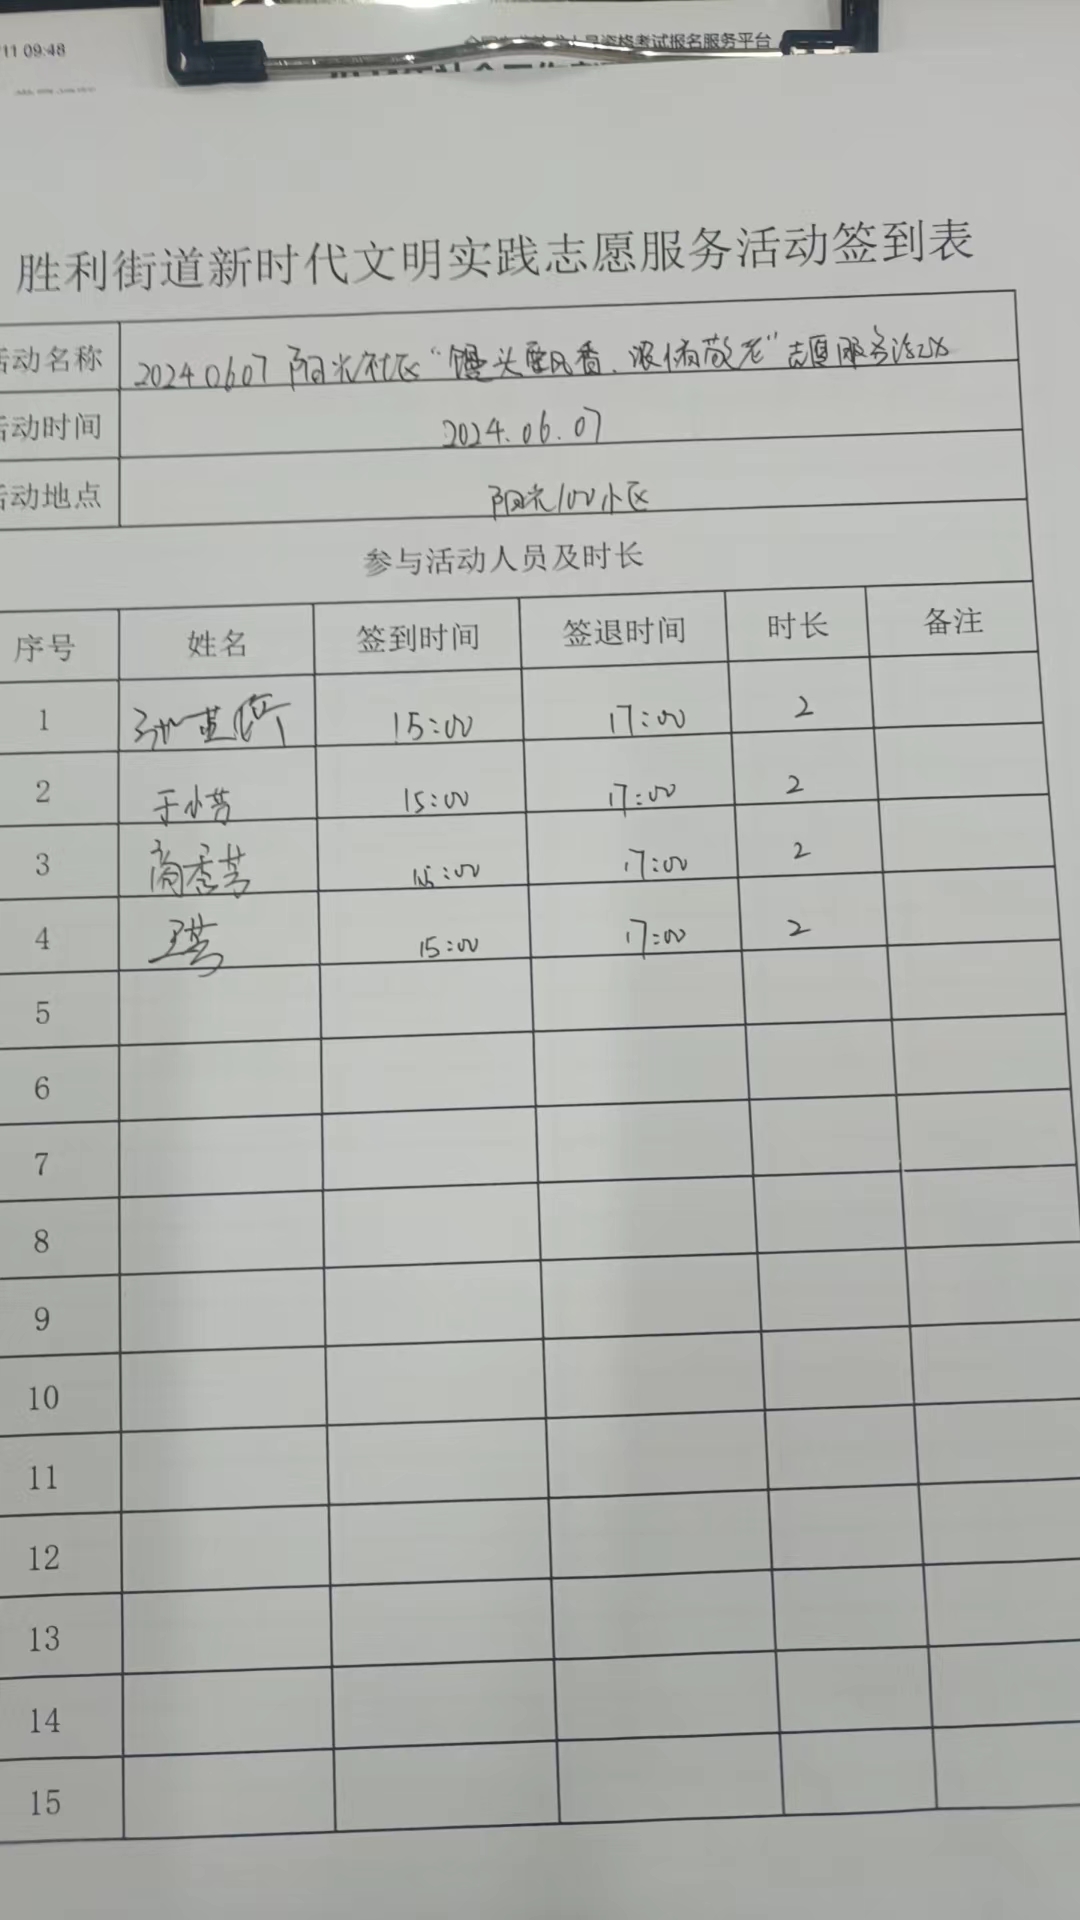 11 09:48
资格考试报名服务平台
胜利街道新时代文明实践志愿服务活动签到表
活动名称 20240607 阳光社区“馒头香、浓情敬老”志愿服务活动
活动时间 2024.06.07
活动地点 阳光100小区
参与活动人员及时长
序号 姓名 签到时间 签退时间 时长 备注
1 15:00 17:00 2
2 于小芳 15:00 17:00 2
3 15:00 17:00 2
4 15:00 17:00 2
5
6
7
8
9
10
11
12
13
14
15